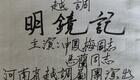 越調
明鏡記
主演：申鳳梅同志
馬蘭同志
河南省越調劇團演出